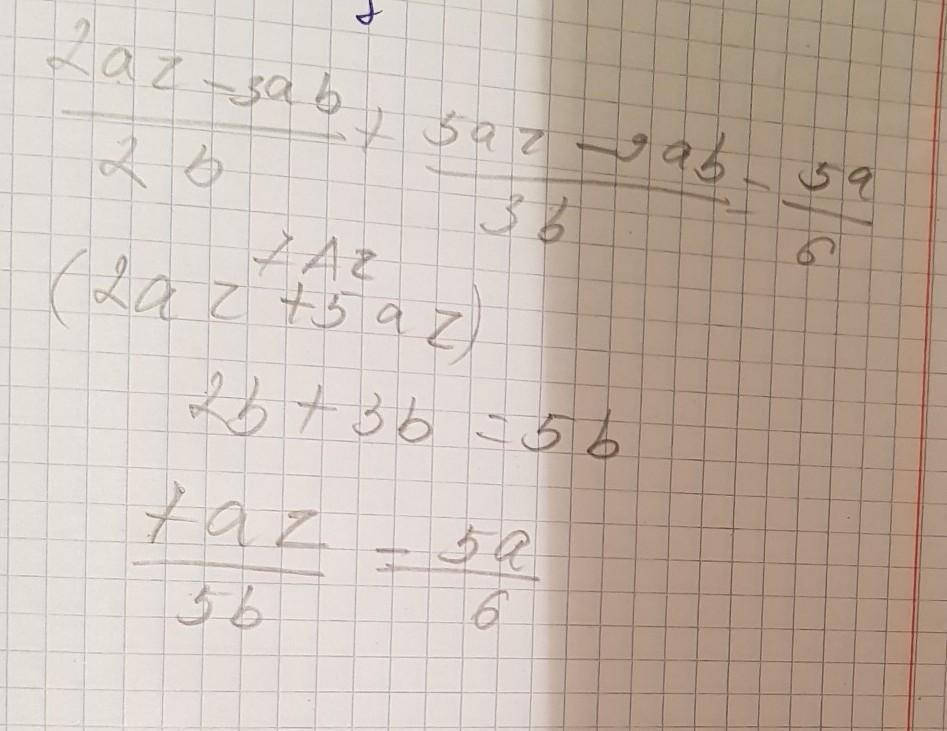 2az - 3ab / 2b + 5az - 9ab / 3b = 5a / 6
7Az
(2az + 5az)
2b + 3b = 5b
7az / 5b = 5a / 6